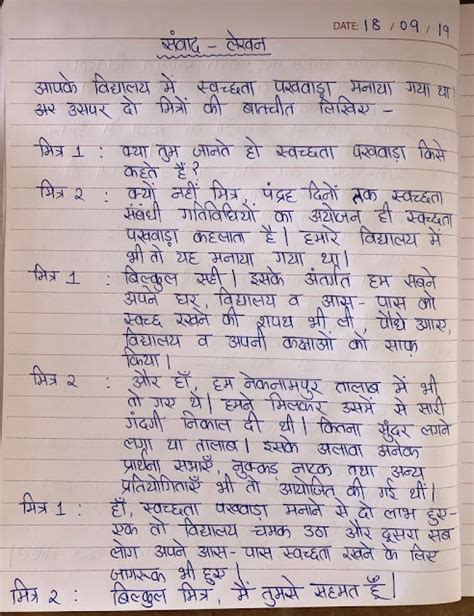 DATE: 18 / 09 / 19
संवाद - लेखन
आपके विद्यालय में स्वच्छता पखवाड़ा मनाया गया था।
अर उसपर दो मित्रों की बातचीत लिखिए -
मित्र 1 : क्या तुम जानते हो स्वच्छता पखवाड़ा किसे
कहते हैं?
मित्र 2 : क्यों नहीं मित्र, पंद्रह दिनों तक स्वच्छता
संबंधी गतिविधियों का अयोजन ही स्वच्छता
पखवाड़ा कहलाता है। हमारे विद्यालय में
भी तो यह मनाया गया था।
मित्र 1 : बिल्कुल सही। इसके अंतर्गत हम सबने
अपने घर, विद्यालय व आस-पास को
स्वच्छ रखने की शपथ भी ली, पौधे उगाए,
विद्यालय व अपनी कक्षाओं को साफ़
किया।
मित्र 2 : और हाँ, हम नेकनामपुर तालाब में भी
तो गए थे। हमने मिलकर उसमें से सारी
गंदगी निकाल दी थी। कितना सुंदर लगने
लगा था तालाब। इसके अलावा अनेक
प्रार्थना सभाएँ, नुक्कड़ नाटक तथा अन्य
प्रतियोगिताएँ भी तो आयोजित की गई थीं।
मित्र 1 : हाँ, स्वच्छता पखवाड़ा मनाने से दो लाभ हुए-
एक तो विद्यालय चमक उठा और दूसरा सब
लोग अपने आस-पास स्वच्छता रखने के लिए
जागरूक भी हुए।
मित्र 2 : बिल्कुल मित्र, मैं तुमसे सहमत हूँ।